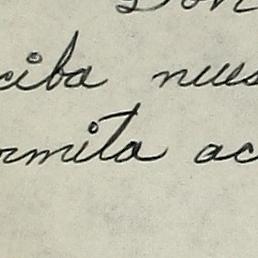 Don
ciba nues
rmita ac